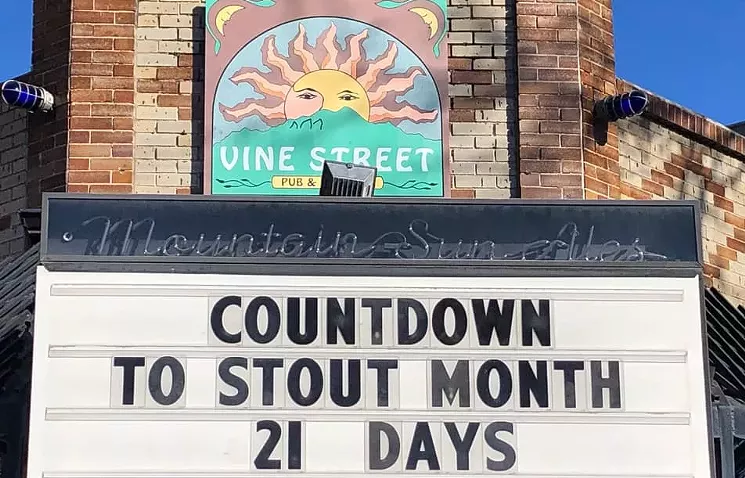 VINE STREET
PUB &
Mountain Sun Ales
COUNTDOWN
TO STOUT MONTH
21 DAYS